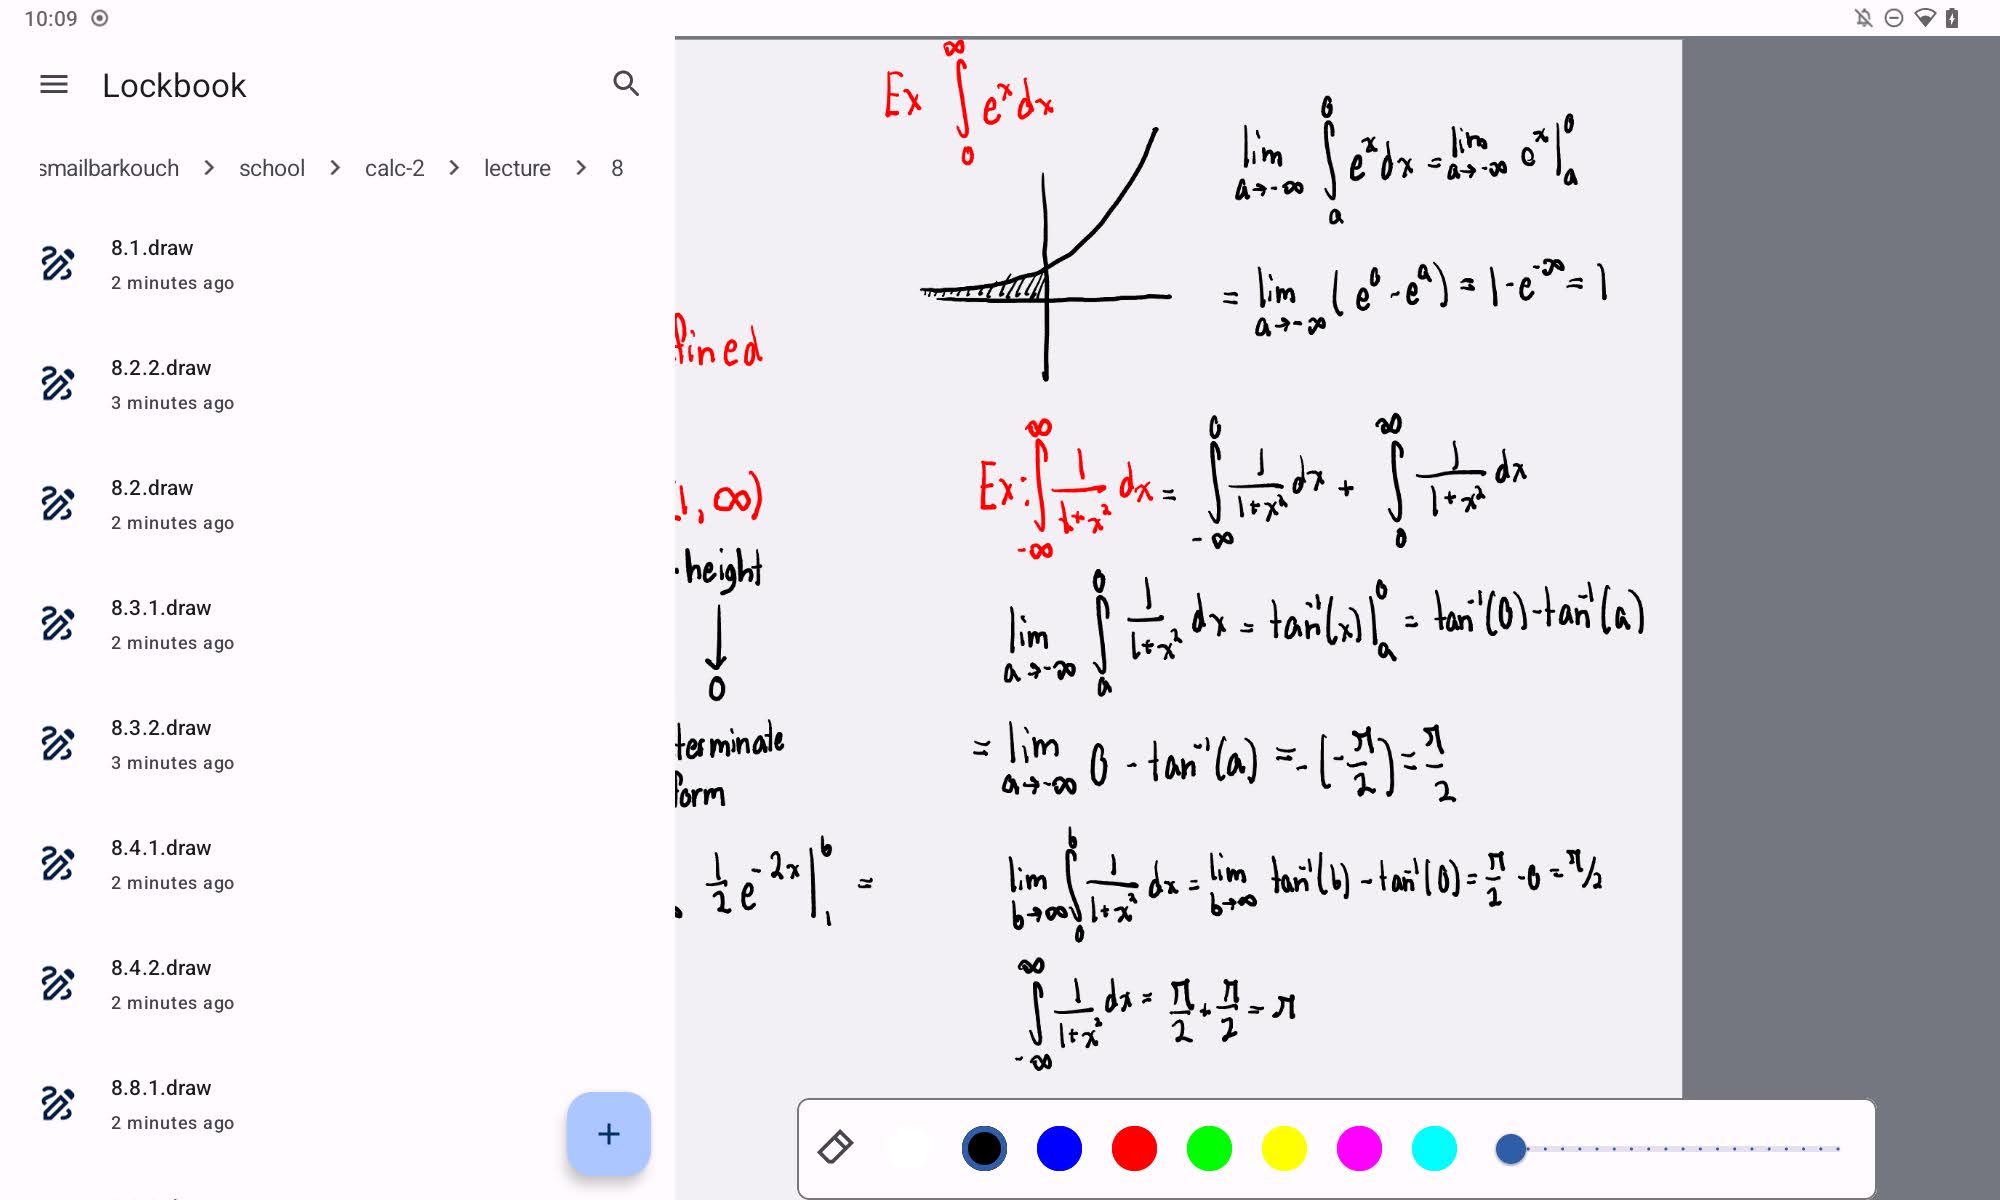 10:09
Lockbook
smailbarkouch > school > calc-2 > lecture > 8
8.1.draw
2 minutes ago
8.2.2.draw
3 minutes ago
8.2.draw
2 minutes ago
8.3.1.draw
2 minutes ago
8.3.2.draw
3 minutes ago
8.4.1.draw
2 minutes ago
8.4.2.draw
2 minutes ago
8.8.1.draw
2 minutes ago
+
fined
1, ∞)
· height
↓
0
terminate
form
1/2 e^{-2x} |_1^b =
Ex ∫_0^∞ e^x dx
lim_{a→-∞} ∫_a^0 e^x dx = lim_{a→-∞} e^x |_a^0
= lim_{a→-∞} (e^0 - e^a) = 1 - e^{-∞} = 1
Ex: ∫_{-∞}^∞ 1/(1+x²) dx = ∫_{-∞}^0 1/(1+x²) dx + ∫_0^∞ 1/(1+x²) dx
lim_{a→-∞} ∫_a^0 1/(1+x²) dx = tan⁻¹(x) |_a^0 = tan⁻¹(0) - tan⁻¹(a)
= lim_{a→-∞} 0 - tan⁻¹(a) = -(-π/2) = π/2
lim_{b→∞} ∫_0^b 1/(1+x²) dx = lim_{b→∞} tan⁻¹(b) - tan⁻¹(0) = π/2 - 0 = π/2
∫_{-∞}^∞ 1/(1+x²) dx = π/2 + π/2 = π